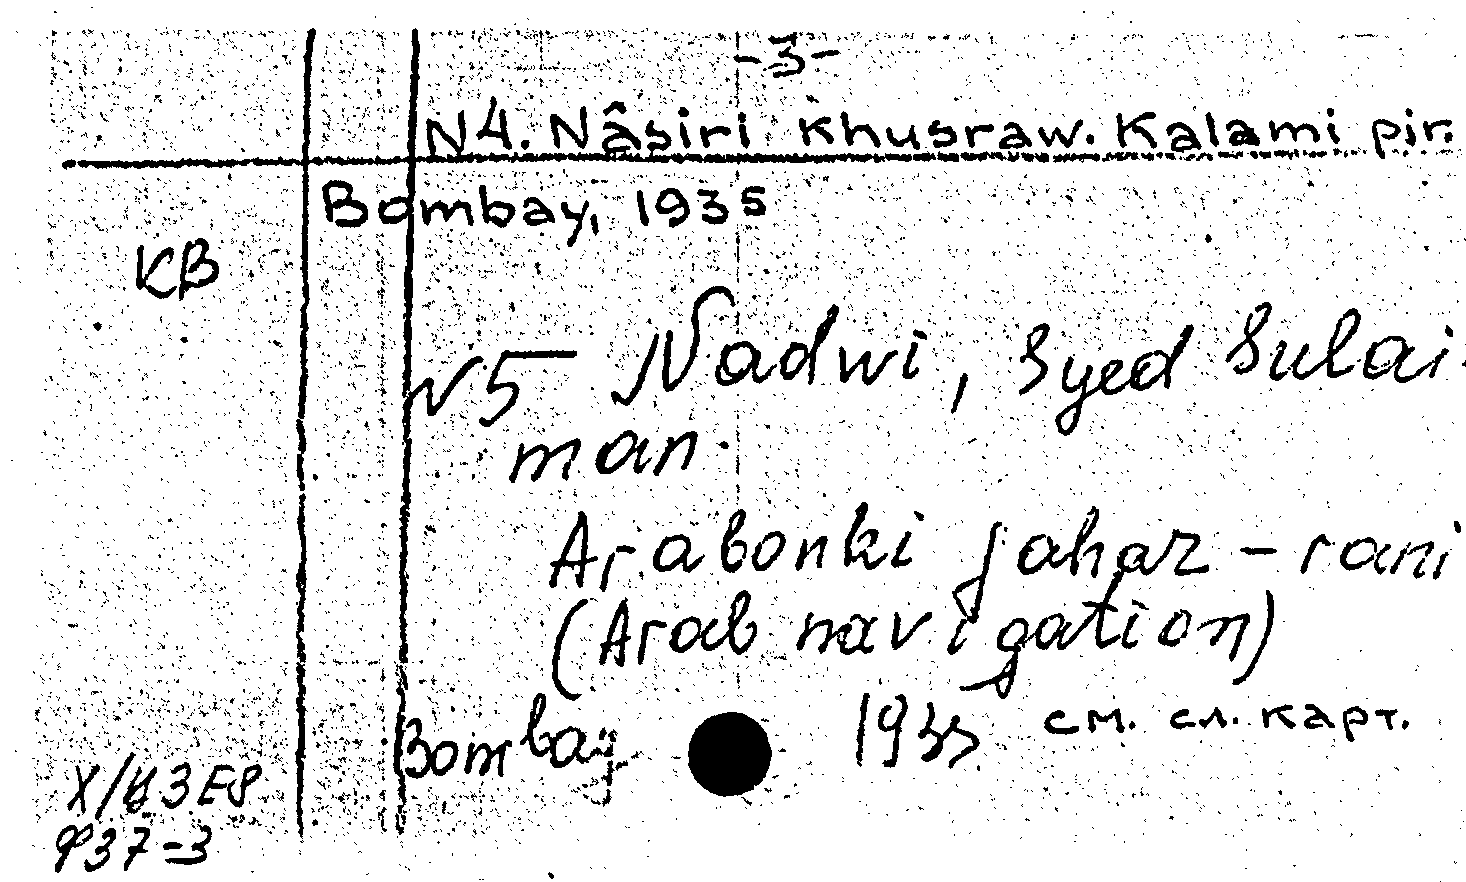 -3-
N4. Nâsiri Khusraw. Kalami pir.
Bombay, 1935
КВ
N5 Nadwi, Syed Sulai-
man.
Arabonki Jahaz-rani
(Arab navigation)
Bombay 1935 см. сл. карт.
X/43E8
937-3